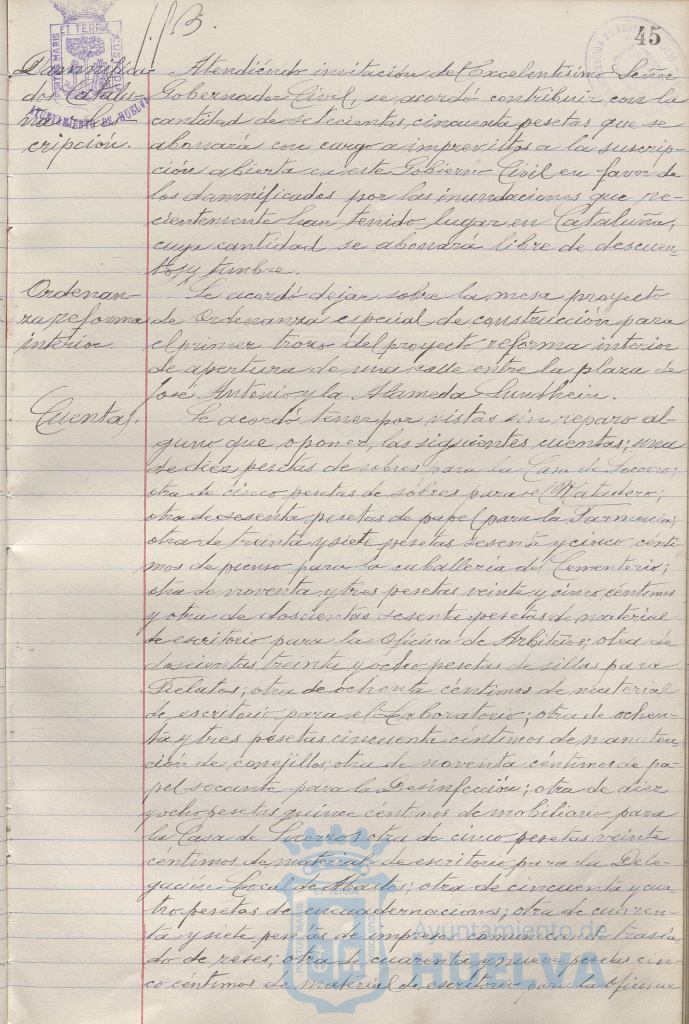 113.
45
Damnifica-
dos Catalu-
ña
cripción.
Atendiendo invitación del Excelentísimo Señor
Gobernador Civil, se acordó contribuir con la
cantidad de setecientas, cincuenta pesetas que se
abonará con cargo a imprevistos a la suscrip-
ción abierta en este Gobierno Civil en favor de
los damnificados por las inundaciones que re-
cientemente han tenido lugar en Cataluña,
cuya cantidad se abonará libre de descuen-
tos y timbre.
Ordenan-
za reforma
interior.
Se acordó dejar sobre la mesa proyecto
de Ordenanza especial de construcción para
el primer trozo del proyecto reforma interior
de apertura de una calle entre la plaza de
José Antonio y la Alameda Sundhein.
Cuentas.
Se acordó tener por vistas sin reparo al-
guno que oponer, las siguientes cuentas; una
de diez pesetas de sobres para la Casa de Socorro;
otra de cinco pesetas de sobres para el Matadero;
otra de sesenta pesetas de papel para la Farmacia;
otra de treinta y siete pesetas sesenta y cinco cénti-
mos de pienso para la caballería del Cementerio;
otra de noventa y tres pesetas veinte y cinco céntimos
y otra de doscientas sesenta pesetas de material
de escritorio para la oficina de Arbitrios; otra de
doscientas treinta y ocho pesetas de sillas para
Fielatos; otra de ochenta céntimos de material
de escritorio para el Laboratorio; otra de ochen-
ta y tres pesetas cincuenta céntimos de manuten-
ción de conejillos; otra de noventa céntimos de pa-
pel secante para la Desinfección; otra de diez
y ocho pesetas quince céntimos de mobiliario para
la Casa de Socorro; otra de cinco pesetas veinte
céntimos de material de escritorio para la Dele-
gación Local de Abastos; otra de cincuenta y cua-
tro pesetas de encuadernaciones; otra de cuaren-
ta y siete pesetas de impresos comunicando trasla-
do de reses; otra de cuarenta y nueve pesetas cin-
co céntimos de material de escritorio para la Oficina
AYUNTAMIENTO DE HUELVA
Ayuntamiento de
HUELVA